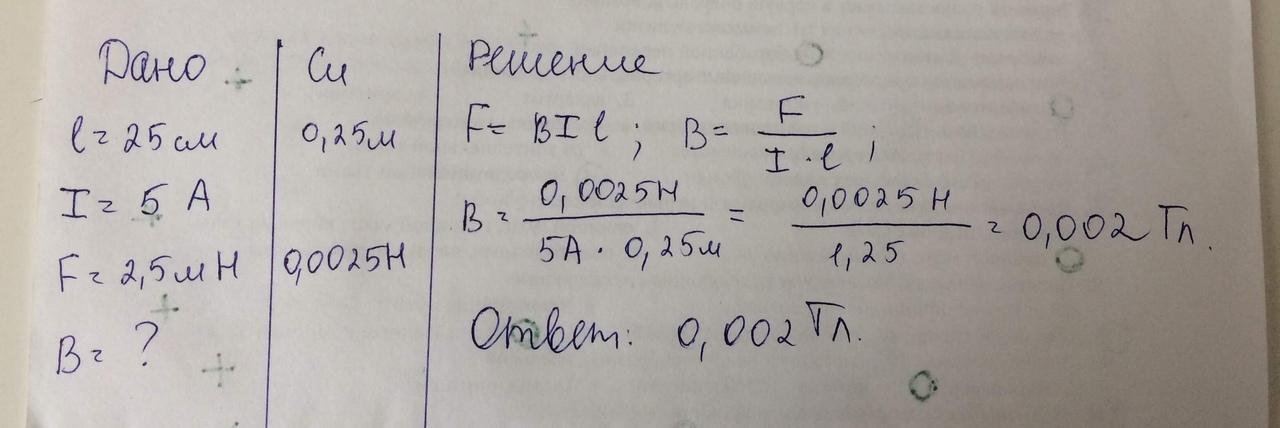 Дано
l = 25 см
I = 5 А
F = 2,5 мН
B = ?
Си
0,25 м
0,0025Н
Решение
F = BIl ; B = F / I · l ;
B = 0,0025Н / 5А · 0,25м = 0,0025 Н / 1,25 = 0,002 Тл.
Ответ: 0,002 Тл.